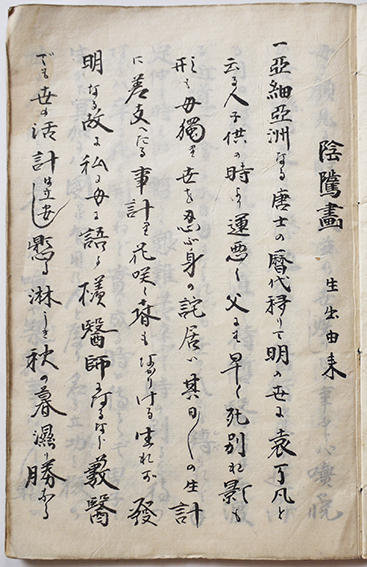 陰騭盡
生出由来
一亞細亞洲なる唐士の暦代移りて明の世に袁了凡と
云る人子供の時より運悪く父にも早く死別れ影も
形も母獨り世を忍ぶ身の詫居ハ其日〱の生計
に差支へたる事計り花咲く春もなかりける生れが發
明なる故に私に母の語る様醫師になるなら藪醫
でも世の活計は立安し愍も淋しき秋の暮濕り勝なる